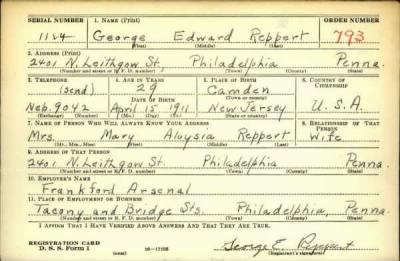 SERIAL NUMBER 1. NAME (Print) ORDER NUMBER
1124 George Edward Reppert 793
(First) (Middle) (Last)
2. ADDRESS (Print)
2401 N. Leithgow St. Philadelphia Penna.
(Number and street or R. F. D. number) (Town) (County) (State)
3. TELEPHONE 4. AGE IN YEARS 5. PLACE OF BIRTH 6. COUNTRY OF CITIZENSHIP
(send) 29 Camden
(Town or county)
Neb. 9042 April 15 1911 New Jersey U.S.A.
(Exchange) (Number) (Mo.) (Day) (Yr.) (State or country)
7. NAME OF PERSON WHO WILL ALWAYS KNOW YOUR ADDRESS 8. RELATIONSHIP OF THAT PERSON
Mrs. Mary Aloysia Reppert Wife
(Mr., Mrs., Miss) (First) (Middle) (Last)
9. ADDRESS OF THAT PERSON
2401 N. Leithgow St. Philadelphia Penna.
(Number and street or R. F. D. number) (Town) (County) (State)
10. EMPLOYER'S NAME
Frankford Arsenal
11. PLACE OF EMPLOYMENT OR BUSINESS
Tacony and Bridge Sts. Philadelphia, Penna.
(Number and street or R. F. D. number) (Town) (County) (State)
I AFFIRM THAT I HAVE VERIFIED ABOVE ANSWERS AND THAT THEY ARE TRUE.
REGISTRATION CARD
D. S. S. Form 1 (over) George E. Reppert
(Registrant's signature)